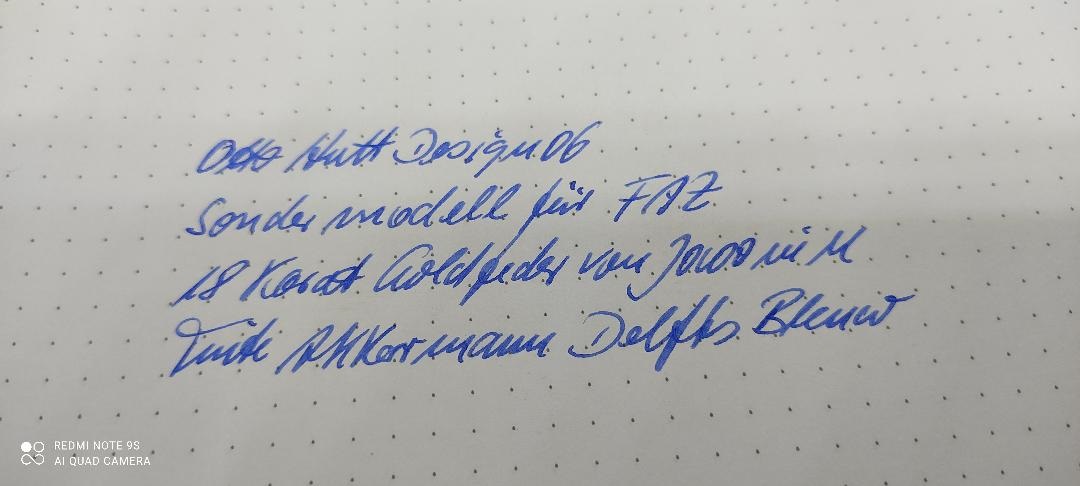 Otto Hutt Design 06
Sondermodell für FAZ
18 Karat Goldfeder von Jowo in M
Tinte Akkermann Delfts Blauw
REDMI NOTE 9S
AI QUAD CAMERA